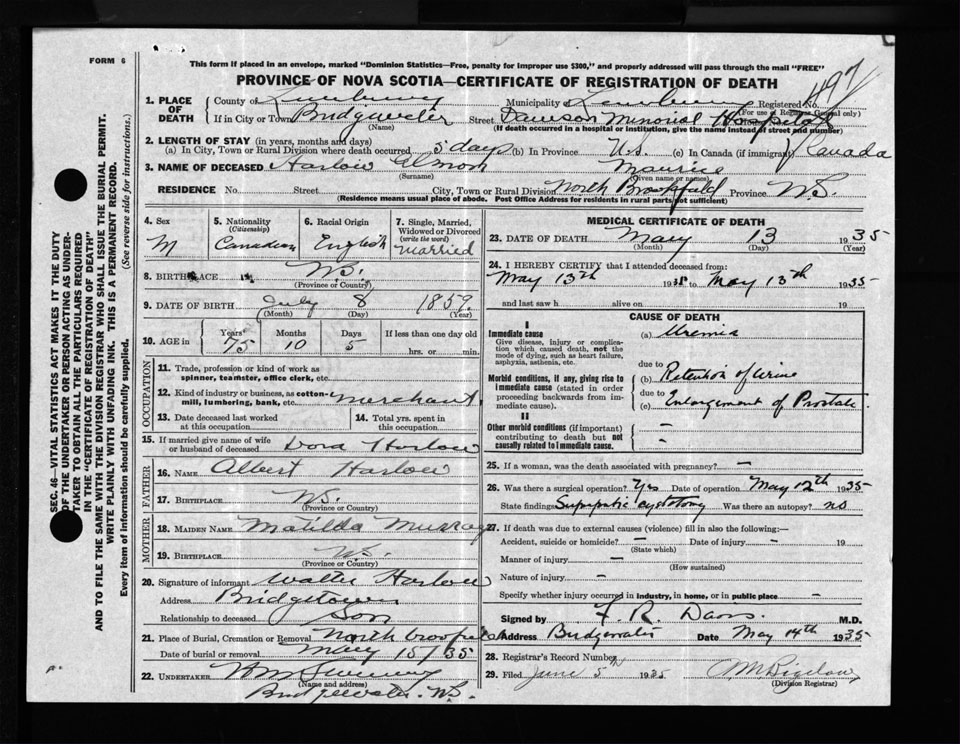 FORM 6
This form if placed in an envelope, marked "Dominion Statistics—Free, penalty for improper use $300," and properly addressed will pass through the mail "FREE"
PROVINCE OF NOVA SCOTIA—CERTIFICATE OF REGISTRATION OF DEATH
497
1. PLACE OF DEATH County of Lunenburg Municipality Lunenburg Registered No.
(For use of Registrar General only)
If in City or Town Bridgewater Street Dawson Memorial Hospital
(Name) (If death occurred in a hospital or institution, give the name instead of street and number)
2. LENGTH OF STAY (in years, months and days)
(a) In City, Town or Rural Division where death occurred 5 days (b) In Province (c) In Canada (if immigrant) Canada
3. NAME OF DECEASED Harlow
(Surname) (Given name or names)
RESIDENCE No. Street City, Town or Rural Division North Brookfield Province N.S.
(Residence means usual place of abode. Post Office Address for residents in rural parts not sufficient)
4. Sex M
5. Nationality (Citizenship) Canadian
6. Racial Origin English
7. Single, Married, Widowed or Divorced (write the word) married
8. BIRTHPLACE N.S.
(Province or Country)
9. DATE OF BIRTH July 8 1859
(Month) (Day) (Year)
10. AGE in Years 75 Months 10 Days 5 If less than one day old hrs. or min.
OCCUPATION
11. Trade, profession or kind of work as spinner, teamster, office clerk, etc.
12. Kind of industry or business, as cotton-mill, lumbering, bank, etc. merchant
13. Date deceased last worked at this occupation
14. Total yrs. spent in this occupation
15. If married give name of wife or husband of deceased Dora Harlow
FATHER
16. NAME Albert Harlow
17. BIRTHPLACE N.S.
MOTHER
18. MAIDEN NAME Matilda Murray
19. BIRTHPLACE N.S.
(Province or Country)
20. Signature of informant Walter Harlow
Address Bridgetown
Relationship to deceased Son
21. Place of Burial, Cremation or Removal North Brookfield
Date of burial or removal May 15/35
22. UNDERTAKER
(Name and address)
Bridgewater N.S.
MEDICAL CERTIFICATE OF DEATH
23. DATE OF DEATH May 13 1935
(Month) (Day) (Year)
24. I HEREBY CERTIFY that I attended deceased from:
May 13th 1935 to May 13th 1935
and last saw h alive on 19
CAUSE OF DEATH
I
Immediate cause
Give disease, injury or complication which caused death, not the mode of dying, such as heart failure, asphyxia, asthenia, etc.
(a) Uremia
due to
Morbid conditions, if any, giving rise to immediate cause (stated in order proceeding backwards from immediate cause).
(b) Retention of urine
due to
(c) Enlargement of Prostate
II
Other morbid conditions (if important) contributing to death but not causally related to immediate cause.
25. If a woman, was the death associated with pregnancy? —
26. Was there a surgical operation? Yes Date of operation May 12th 1935
State finding Suprapubic cystotomy Was there an autopsy? no
27. If death was due to external causes (violence) fill in also the following:—
Accident, suicide or homicide? — Date of injury — 19
(State which)
Manner of injury —
(How sustained)
Nature of injury —
Specify whether injury occurred in industry, in home, or in public place —
Signed by F. R. Davis M.D.
Address Bridgewater Date May 14th 1935
28. Registrar's Record Number
29. Filed June 5 1935
(Division Registrar)
SEC. 46—VITAL STATISTICS ACT MAKES IT THE DUTY
OF THE UNDERTAKER OR PERSON ACTING AS UNDER-
TAKER TO OBTAIN ALL THE PARTICULARS REQUIRED
IN THE "CERTIFICATE OF REGISTRATION OF DEATH"
AND TO FILE THE SAME WITH THE DIVISION REGISTRAR WHO SHALL ISSUE THE BURIAL PERMIT.
WRITE PLAINLY WITH UNFADING INK. THIS IS A PERMANENT RECORD.
Every item of information should be carefully supplied. (See reverse side for instructions.)